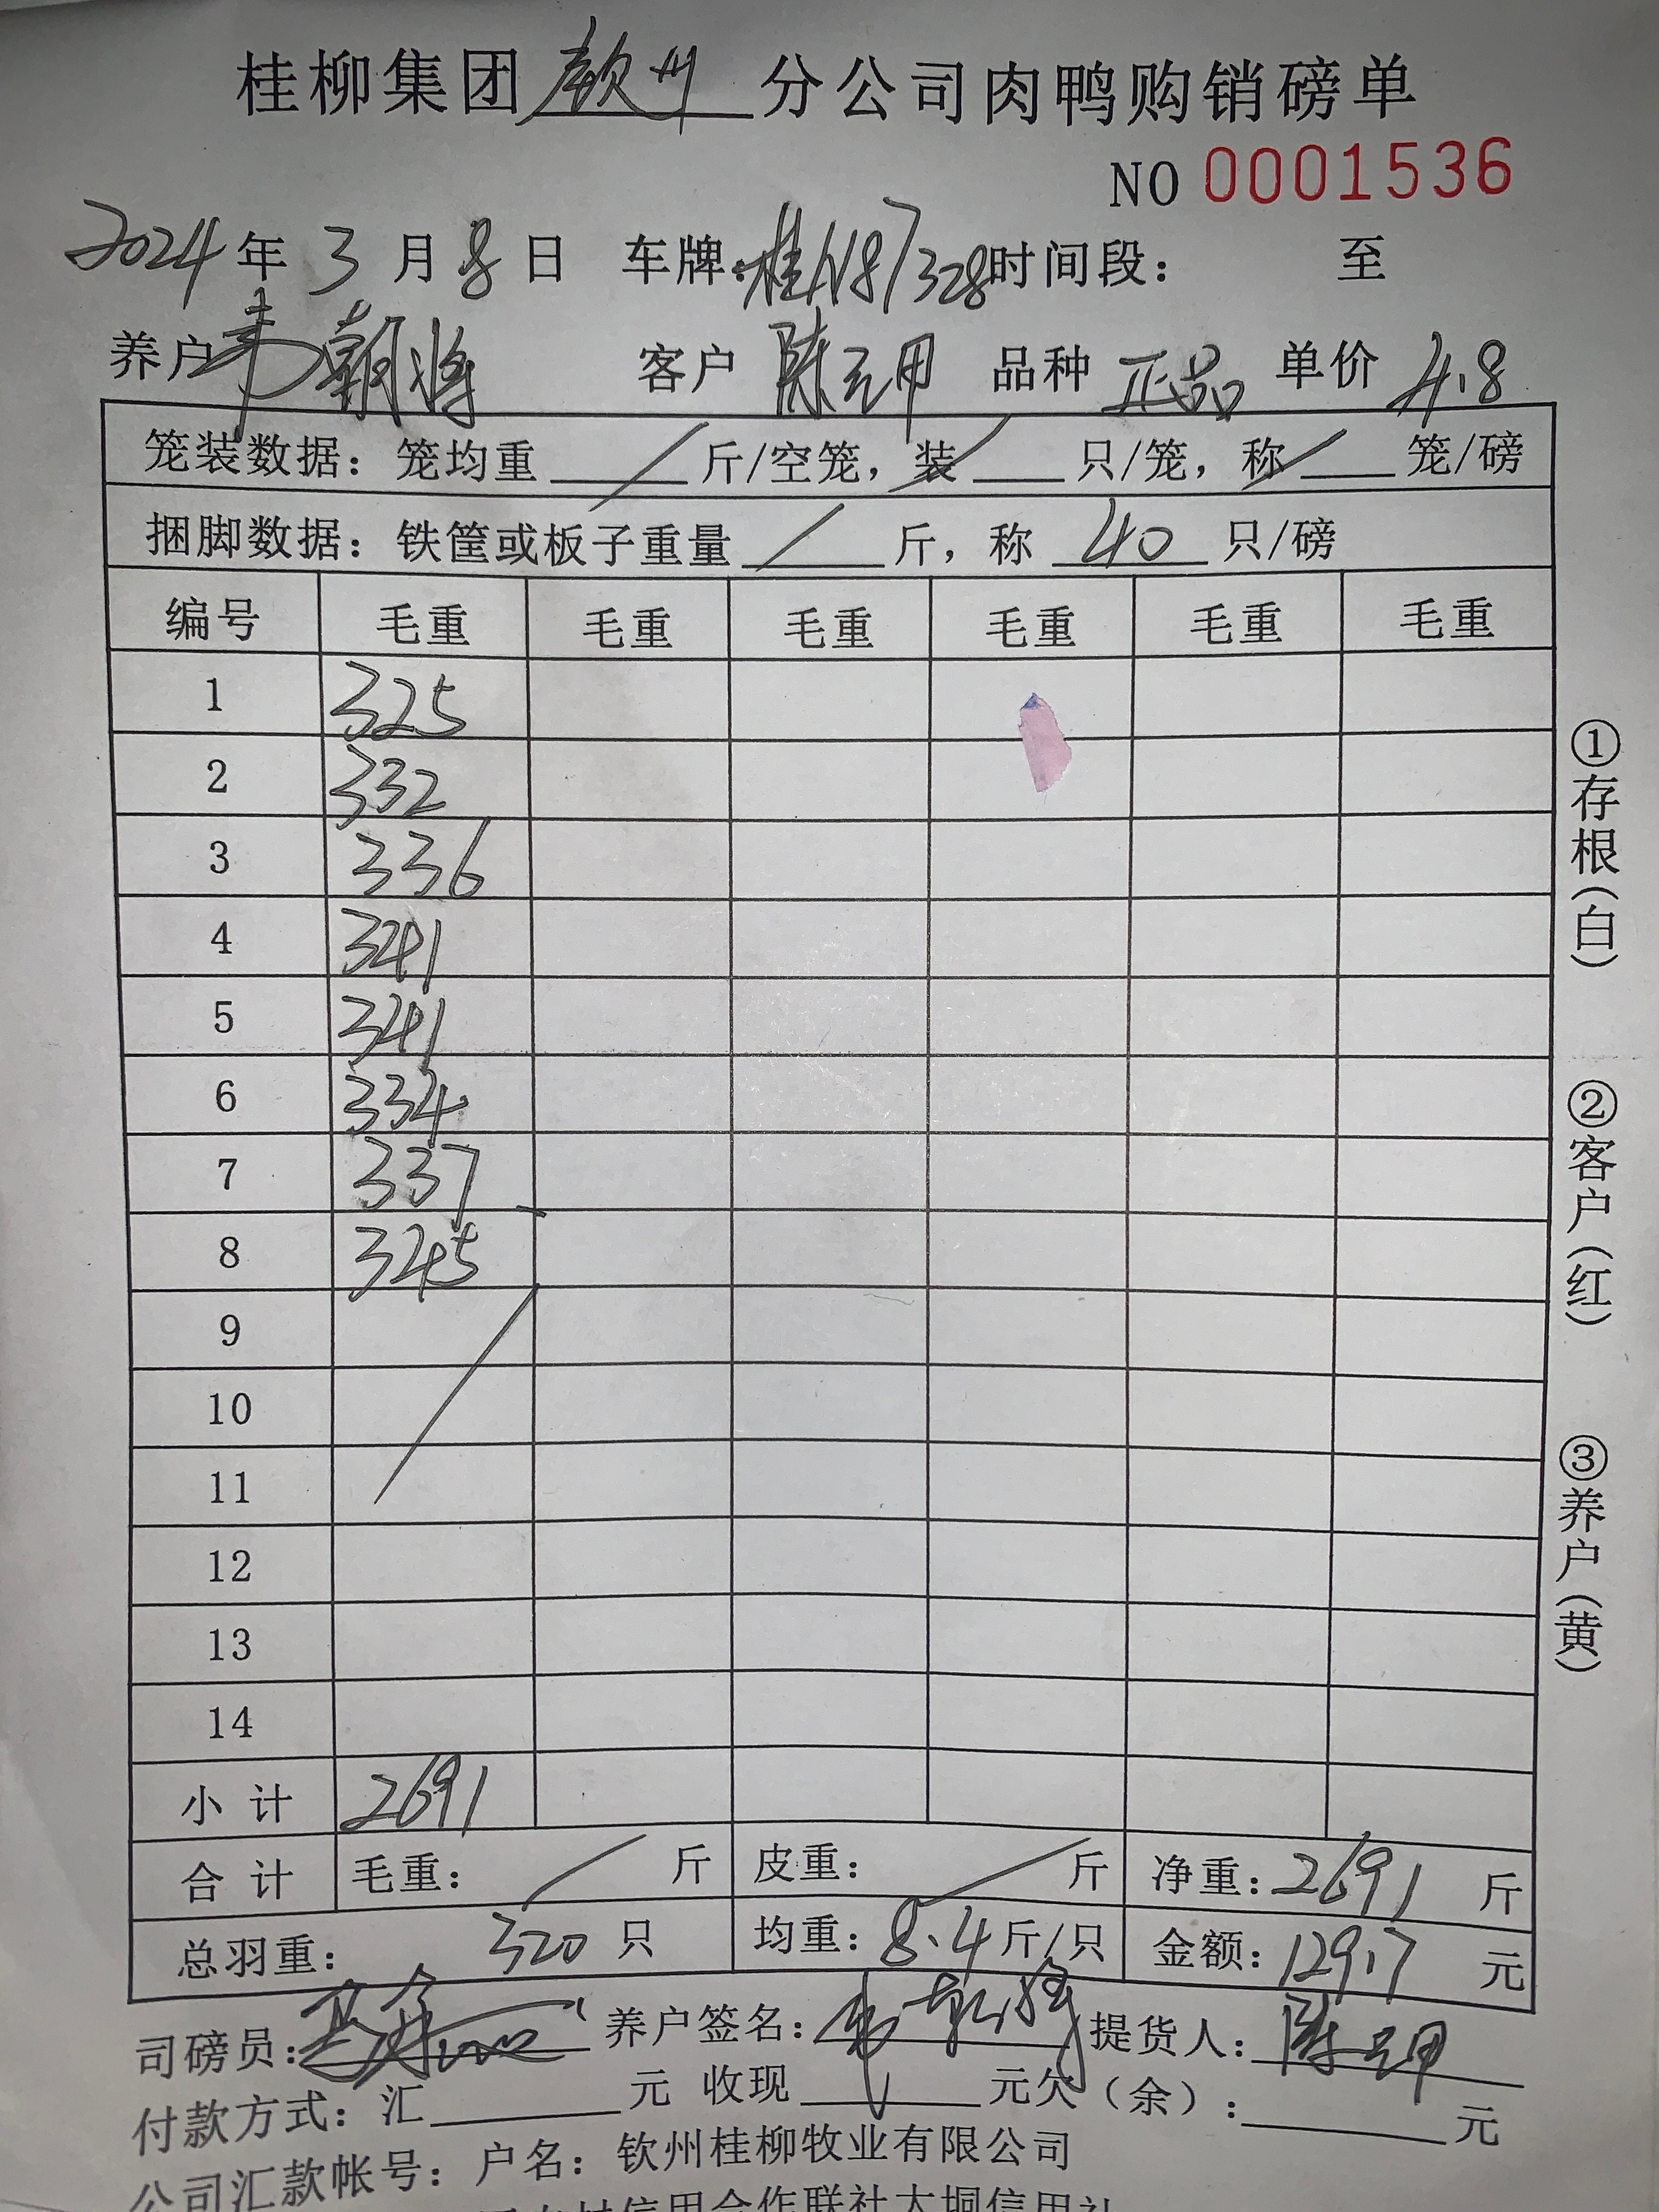 桂柳集团钦州分公司肉鸭购销磅单
NO 0001536
2024年3月8日 车牌:桂N87328时间段: 至
养户韦朝将 客户 陈元甲 品种 正品 单价 4.8
笼装数据:笼均重 / 斤/空笼,装 / 只/笼,称 / 笼/磅
捆脚数据:铁筐或板子重量 / 斤,称 40 只/磅
编号 毛重 毛重 毛重 毛重 毛重 毛重
1 325
2 332
3 336
4 341
5 341
6 334
7 337
8 345
9
10
11
12
13
14
小计 2691
合计 毛重: / 斤 皮重: / 斤 净重:2691 斤
总羽重: 320 只 均重:8.4斤/只 金额:12917 元
司磅员: 养户签名: 提货人:陈元甲
付款方式:汇 元 收现 元欠(余): 元
公司汇款帐号:户名:钦州桂柳牧业有限公司
信用合作联社大垌信用社
①存根(白)
②客户(红)
③养户(黄)